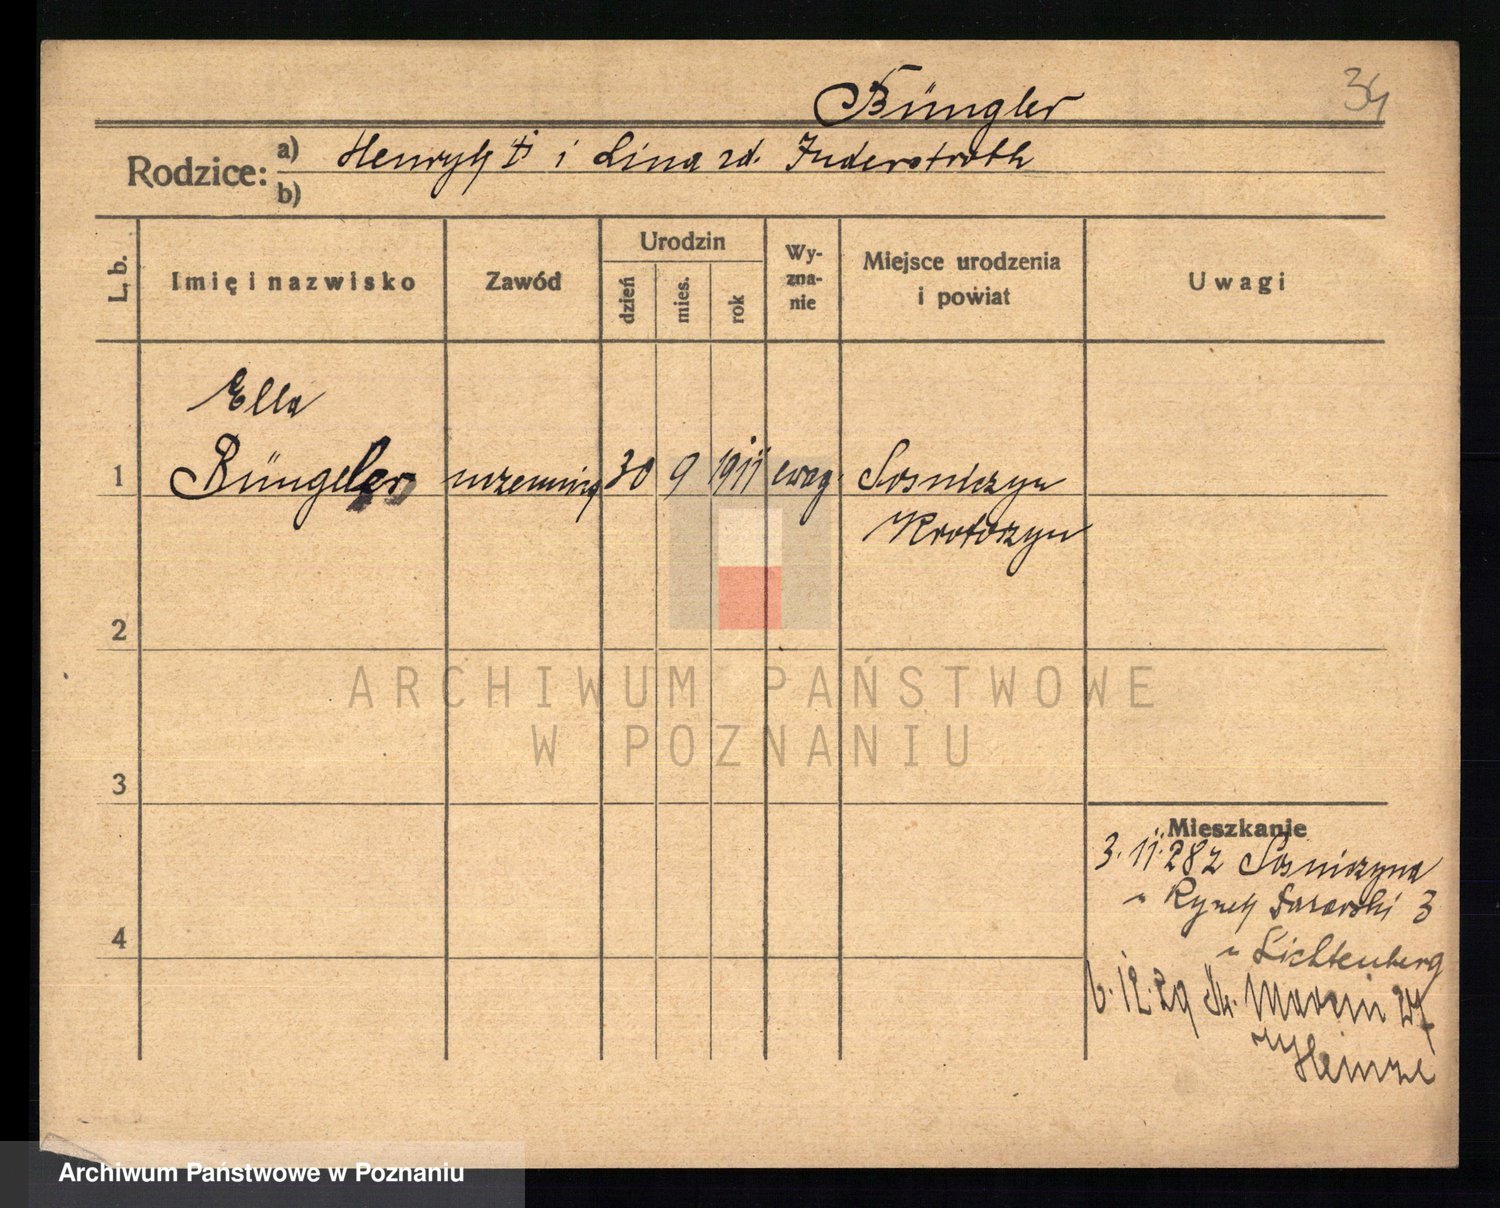 34
Büngler
Rodzice: a) Henryk i Lina zd. Inderstroth
b)
L. b.
Imię i nazwisko
Zawód
Urodzin
dzień
mies.
rok
Wy-
zna-
nie
Miejsce urodzenia
i powiat
Uwagi
Ella
1 Büngeler uczennica 30 9 1911 ewag. Sośniczyn
Krotoszyn
2
ARCHIWUM PAŃSTWOWE
W POZNANIU
3
Mieszkanie
3. 11. 28 z Sośniczyna
" Rynek 3
" Lichtenberg
12. 29 Św. Marcin
Heinze
4
Archiwum Państwowe w Poznaniu